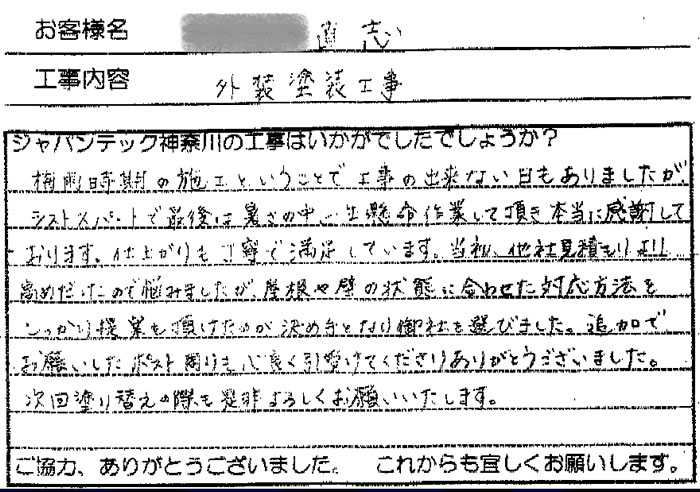 お客様名 直志
工事内容 外装塗装工事
ジャパンテック神奈川の工事はいかがでしたでしょうか？
梅雨時期の施工ということで工事の出来ない日もありましたが、
ラストスパートで最後は暑さの中一生懸命作業して頂き本当に感謝して
おります。仕上がりも丁寧で満足しています。当初、他社見積もりより
高めだったので悩みましたが、屋根や壁の状態に合わせた対応方法を
しっかり提案も頂けたのが決め手となり御社を選びました。追加で
お願いしたポスト周りも心良く引受けてくださりありがとうございました。
次回塗り替えの際も是非よろしくお願いいたします。
ご協力、ありがとうございました。 これからも宜しくお願いします。